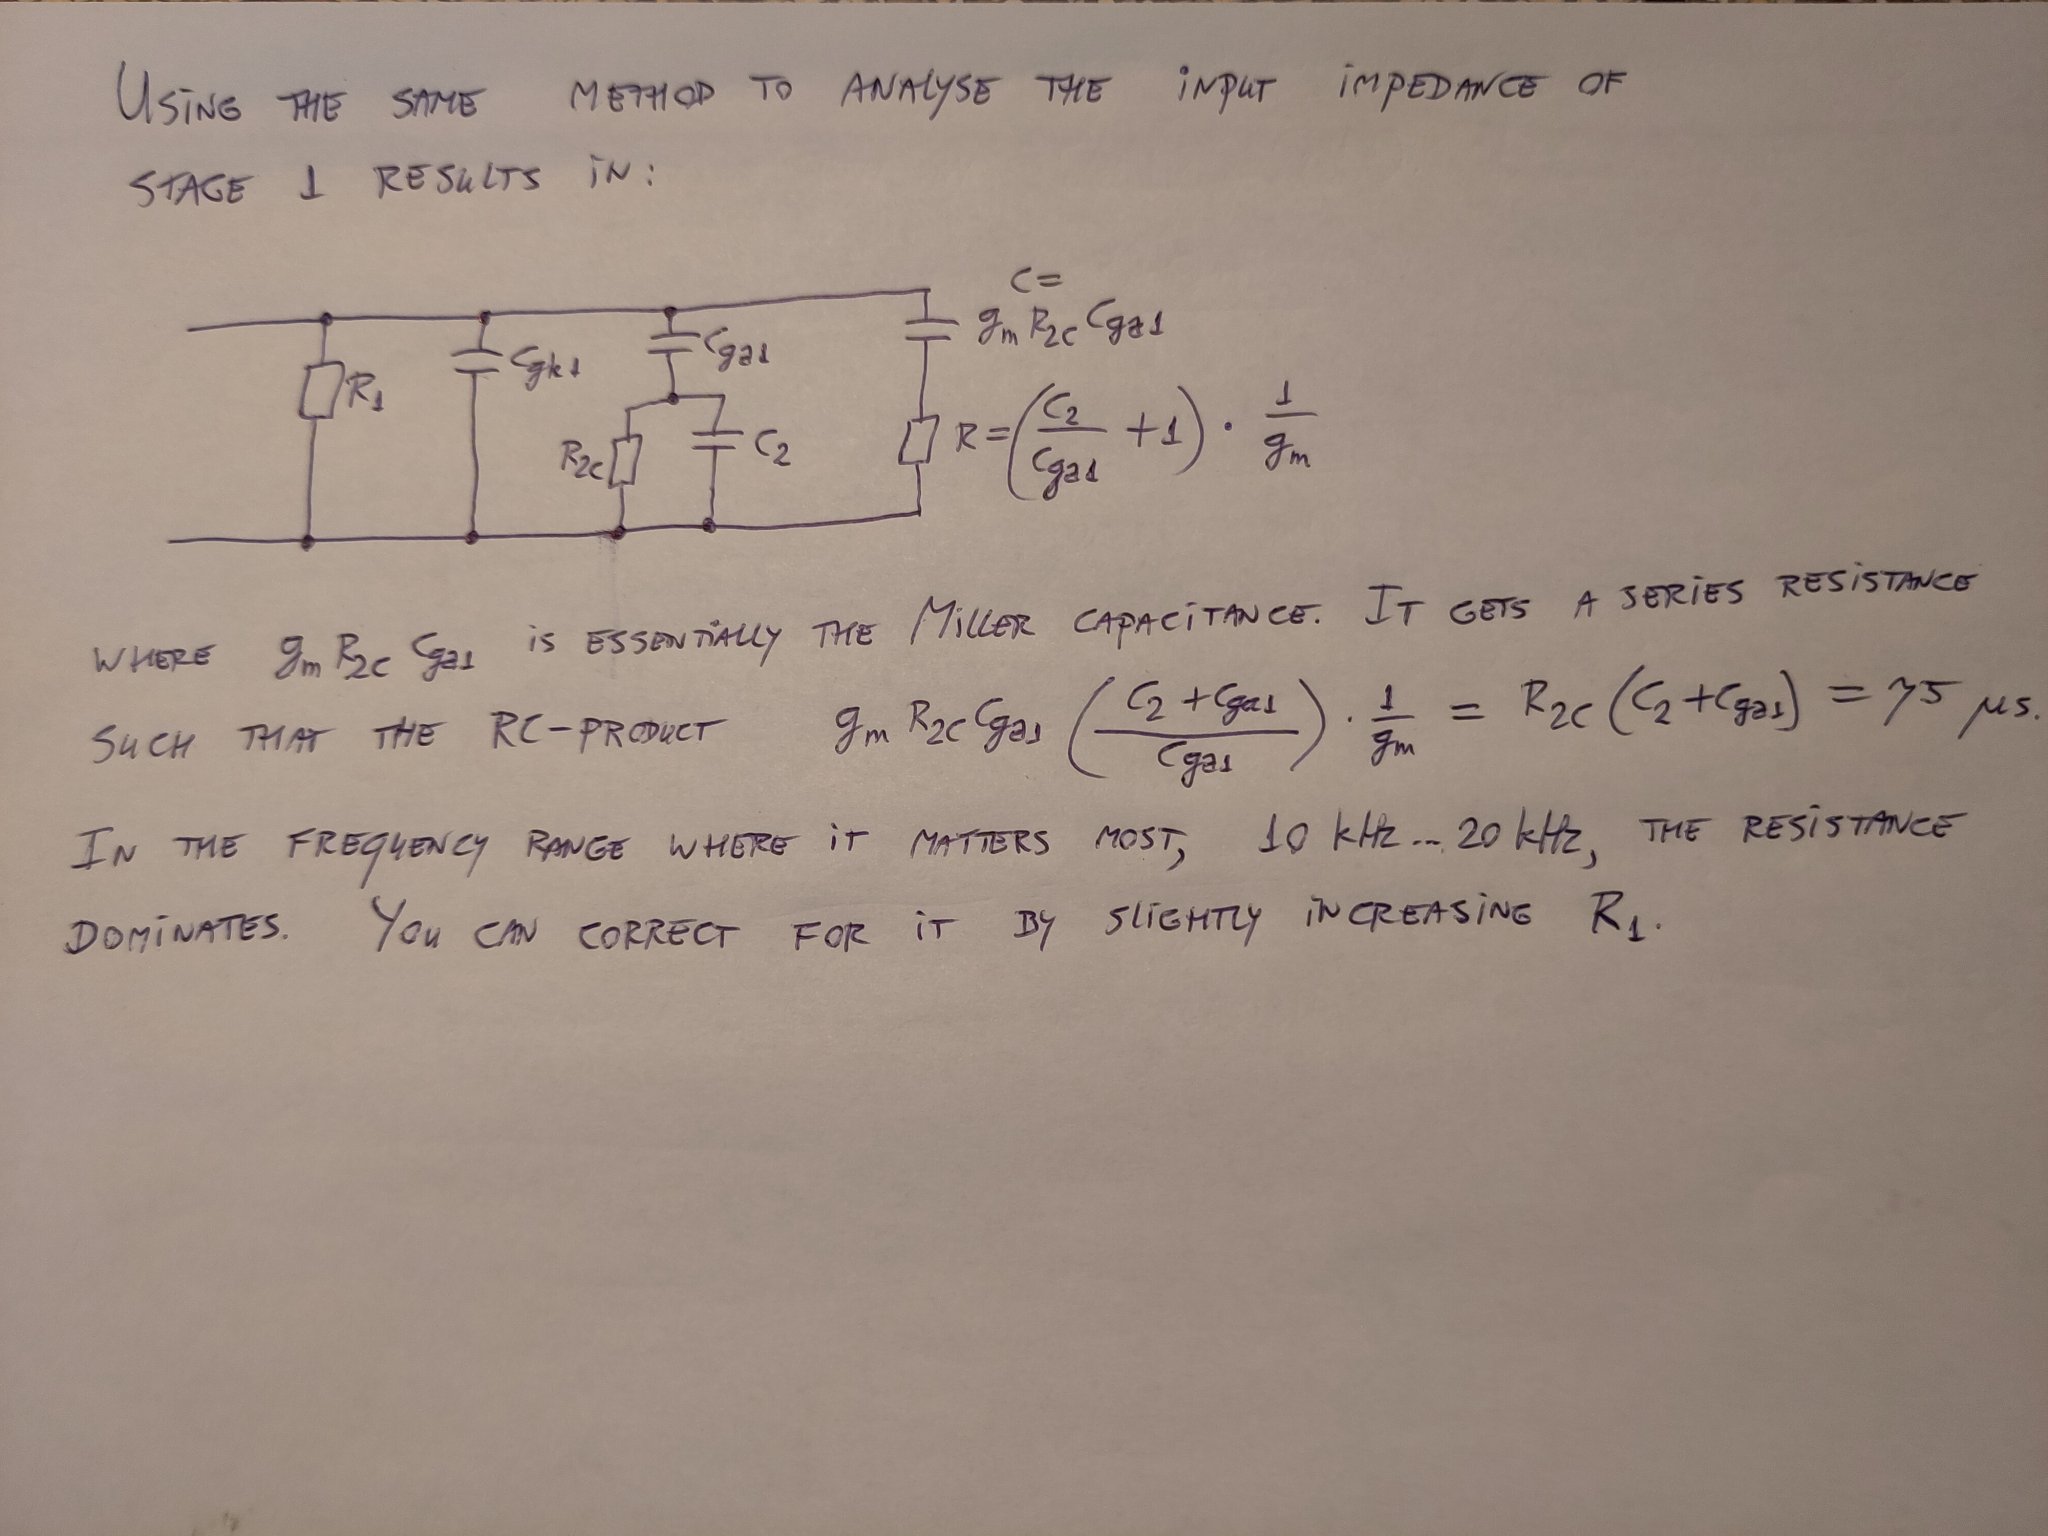 USING THE SAME METHOD TO ANALYSE THE INPUT IMPEDANCE OF
STAGE 1 RESULTS IN:
C=
gm R2c Cga1
R1
Cgk1
Cga1
R2c
C2
R=(C2/Cga1 +1) · 1/gm
WHERE gm R2c Cga1 IS ESSENTIALLY THE MILLER CAPACITANCE. IT GETS A SERIES RESISTANCE
SUCH THAT THE RC-PRODUCT gm R2c Cga1 ((C2 + Cga1)/Cga1) · 1/gm = R2c (C2 + Cga1) = 75 µs.
IN THE FREQUENCY RANGE WHERE IT MATTERS MOST, 10 kHz... 20 kHz, THE RESISTANCE
DOMINATES. YOU CAN CORRECT FOR IT BY SLIGHTLY INCREASING R1.